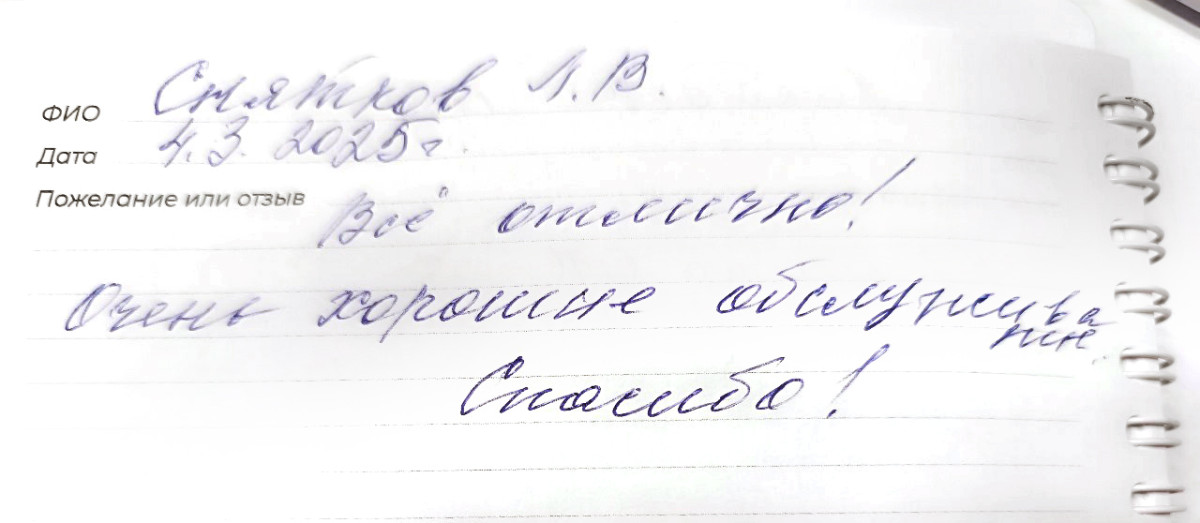 ФИО Снятков Л.В.
Дата 4.3.2025г.
Пожелание или отзыв Всё отлично!
Очень хорошие обслужива
ние
Спасибо!